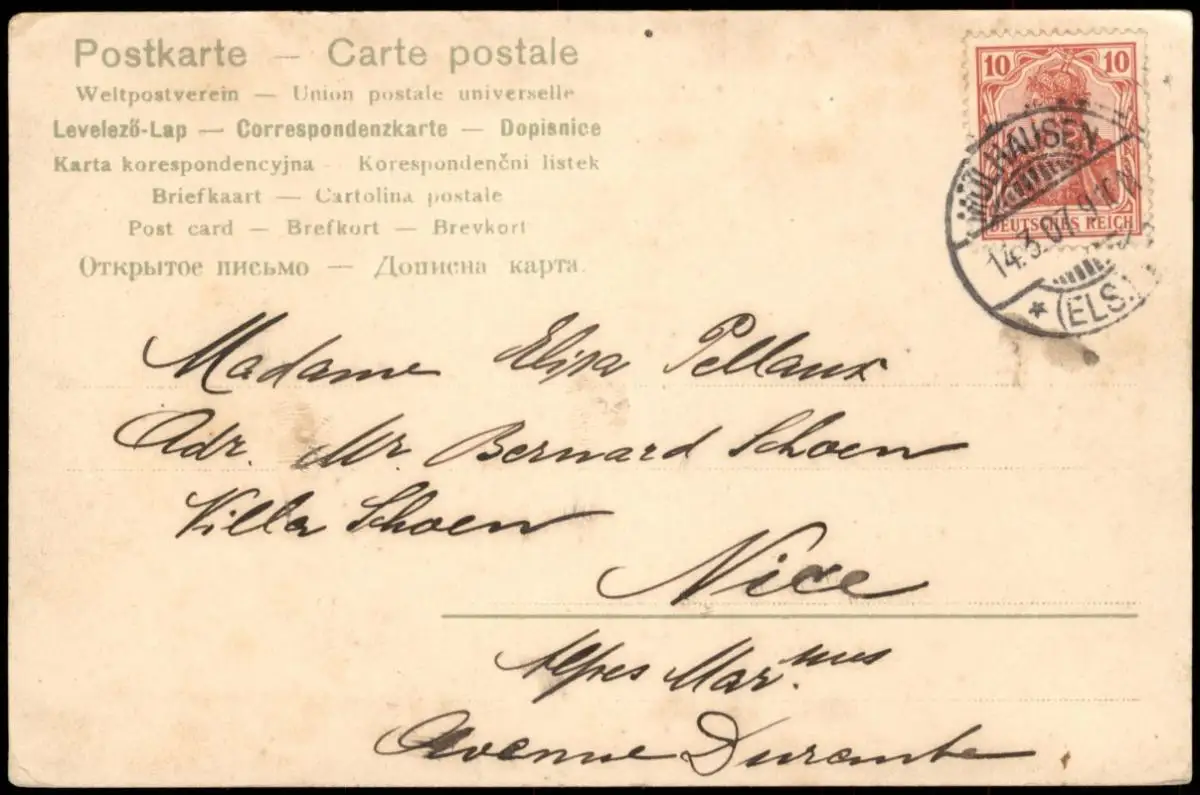 Postkarte — Carte postale
Weltpostverein — Union postale universelle
Levelező-Lap — Correspondenzkarte — Dopisnice
Karta korespondencyjna - Korespondenčni listek
Briefkaart — Cartolina postale
Post card — Brefkort — Brevkort
Открытое письмо — Дописна карта.
10 10
DEUTSCHES REICH
MÜLHAUSEN
14.3.07. 9-10 N
* (ELS.)
Madame Elisa Pellaux
Adr. Mr. Bernard Schoen
Villa Schoen
Nice
Alpes Mar.mes
Avenue Durante